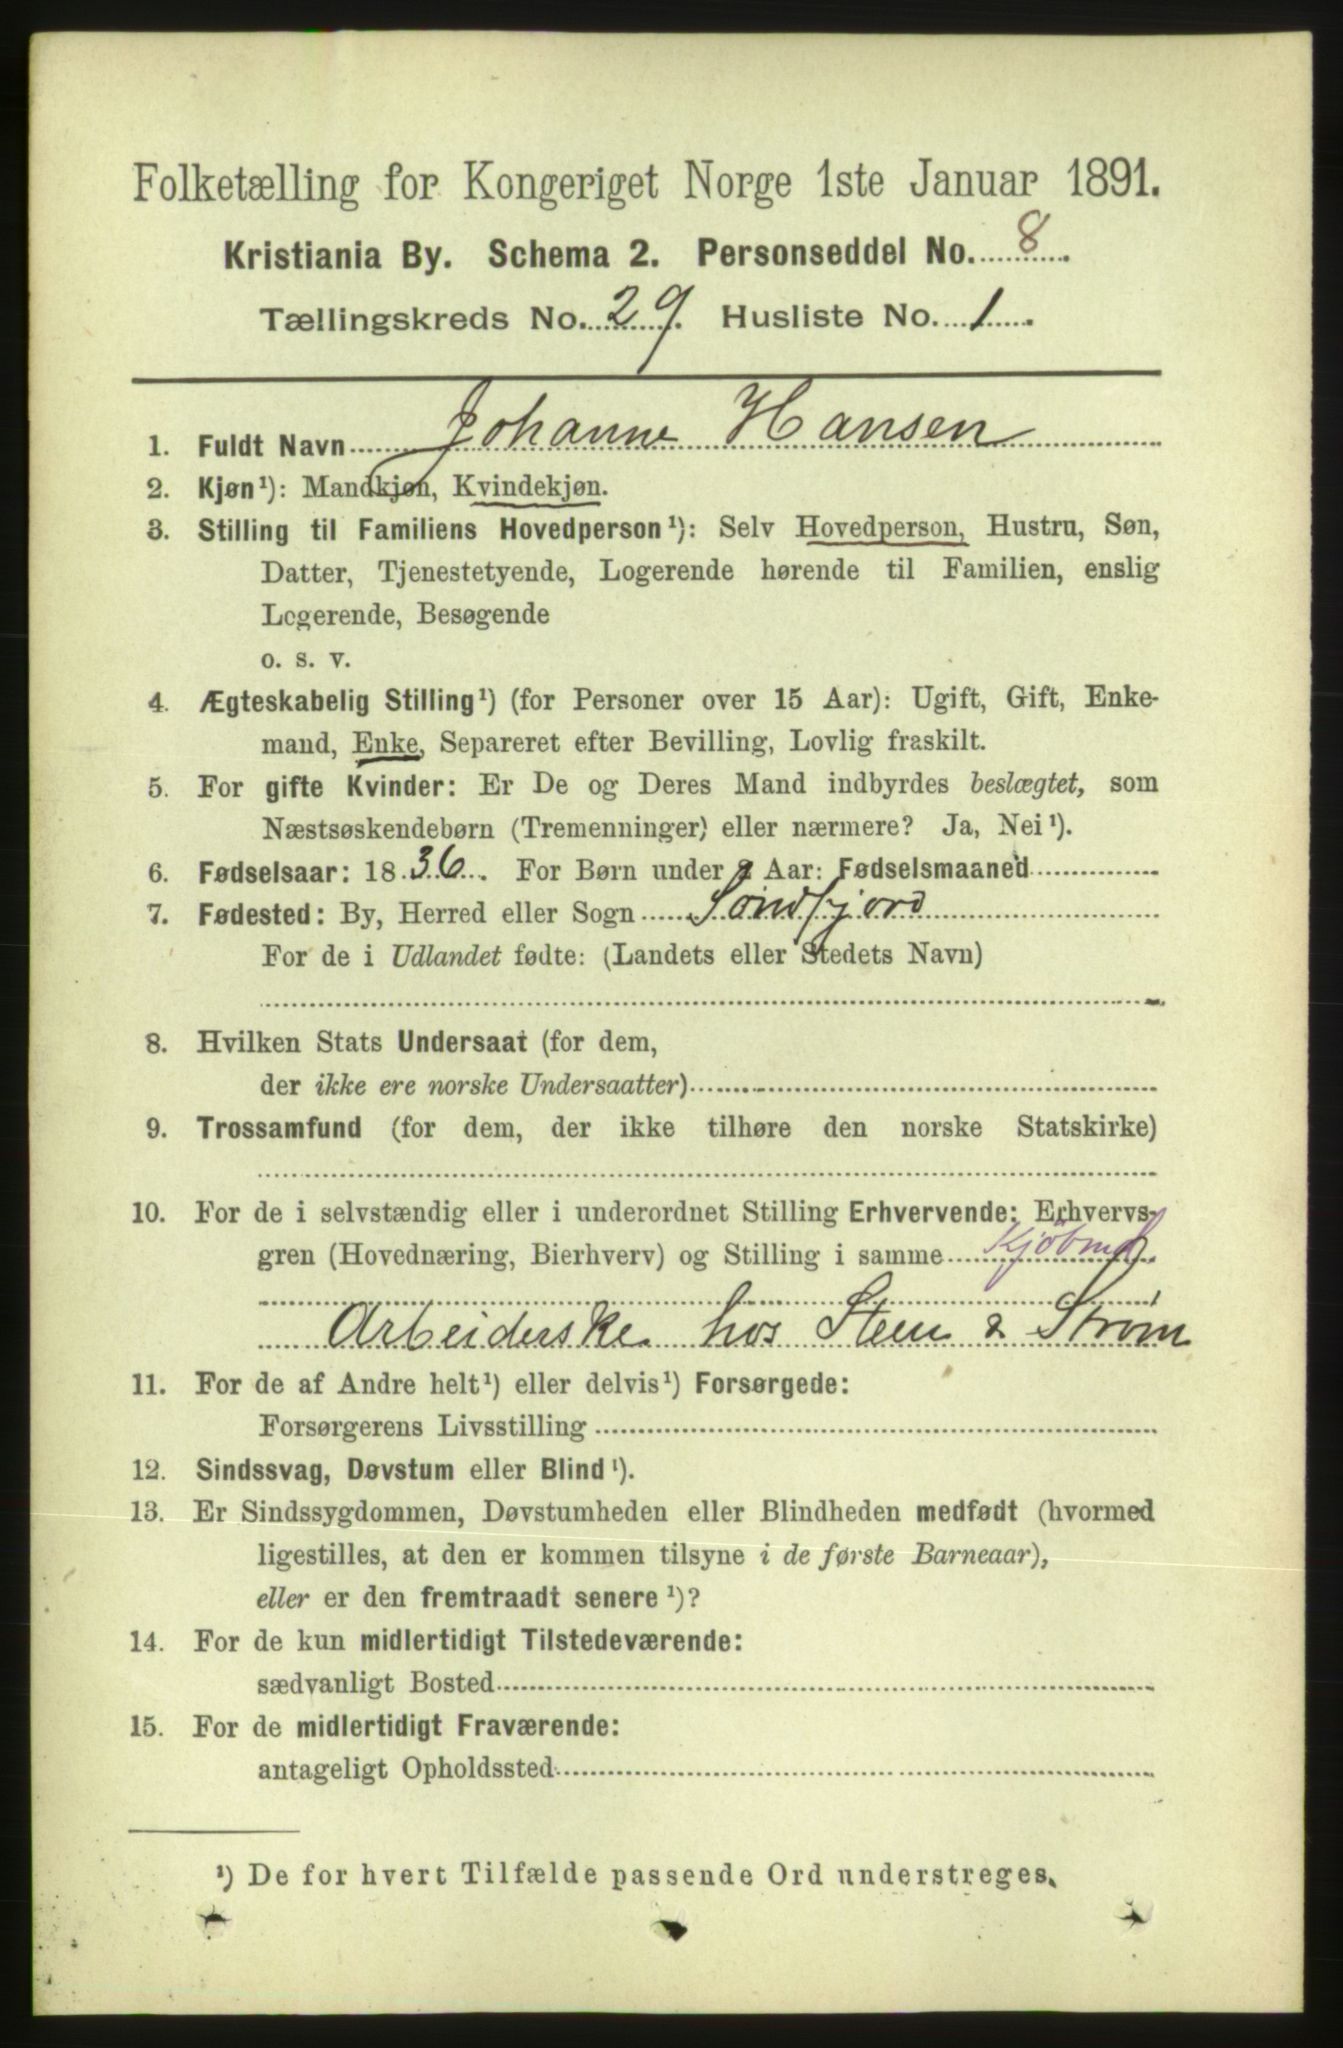 Folketælling for Kongeriget Norge 1ste Januar 1891.
Kristiania By. Schema 2. Personseddel No. 8.
Tællingskreds No. 29. Husliste No. 1.
1. Fuldt Navn Johanne Hansen
2. Kjøn¹): Mandkjøn, Kvindekjøn.
3. Stilling til Familiens Hovedperson¹): Selv Hovedperson, Hustru, Søn,
Datter, Tjenestetyende, Logerende hørende til Familien, enslig
Logerende, Besøgende
o. s. v.
4. Ægteskabelig Stilling¹) (for Personer over 15 Aar): Ugift, Gift, Enke-
mand, Enke, Separeret efter Bevilling, Lovlig fraskilt.
5. For gifte Kvinder: Er De og Deres Mand indbyrdes beslægtet, som
Næstsøskendebørn (Tremenninger) eller nærmere? Ja, Nei¹).
6. Fødselsaar: 1836. For Børn under 2 Aar: Fødselsmaaned
7. Fødested: By, Herred eller Sogn Søndfjord
For de i Udlandet fødte: (Landets eller Stedets Navn)
8. Hvilken Stats Undersaat (for dem,
der ikke ere norske Undersaatter)
9. Trossamfund (for dem, der ikke tilhøre den norske Statskirke)
10. For de i selvstændig eller i underordnet Stilling Erhvervende: Erhvervs-
gren (Hovednæring, Bierhverv) og Stilling i samme Kjöbmd
Arbeiderske hos Steen & Strøm
11. For de af Andre helt¹) eller delvis¹) Forsørgede:
Forsørgerens Livsstilling
12. Sindssvag, Døvstum eller Blind¹).
13. Er Sindssygdommen, Døvstumheden eller Blindheden medfødt (hvormed
ligestilles, at den er kommen tilsyne i de første Barneaar),
eller er den fremtraadt senere¹)?
14. For de kun midlertidigt Tilstedeværende:
sædvanligt Bosted
15. For de midlertidigt Fraværende:
antageligt Opholdssted
¹) De for hvert Tilfælde passende Ord understreges.